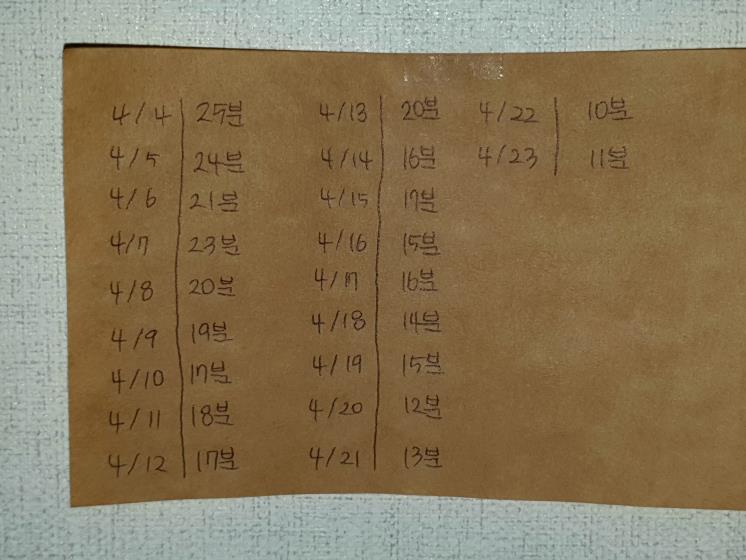 4/4 25분
4/5 24분
4/6 21분
4/7 23분
4/8 20분
4/9 19분
4/10 17분
4/11 18분
4/12 17분
4/13 20분
4/14 16분
4/15 17분
4/16 15분
4/17 16분
4/18 14분
4/19 15분
4/20 12분
4/21 13분
4/22 10분
4/23 11분